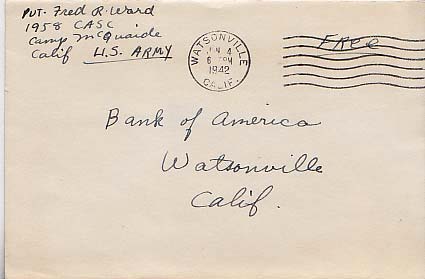 Pvt. Fred R. Ward
1958 CASC
Camp McQuaide
Calif U.S. ARMY
WATSONVILLE
JUN 4
6 PM
1942
CALIF.
Free
Bank of America
Watsonville
Calif.